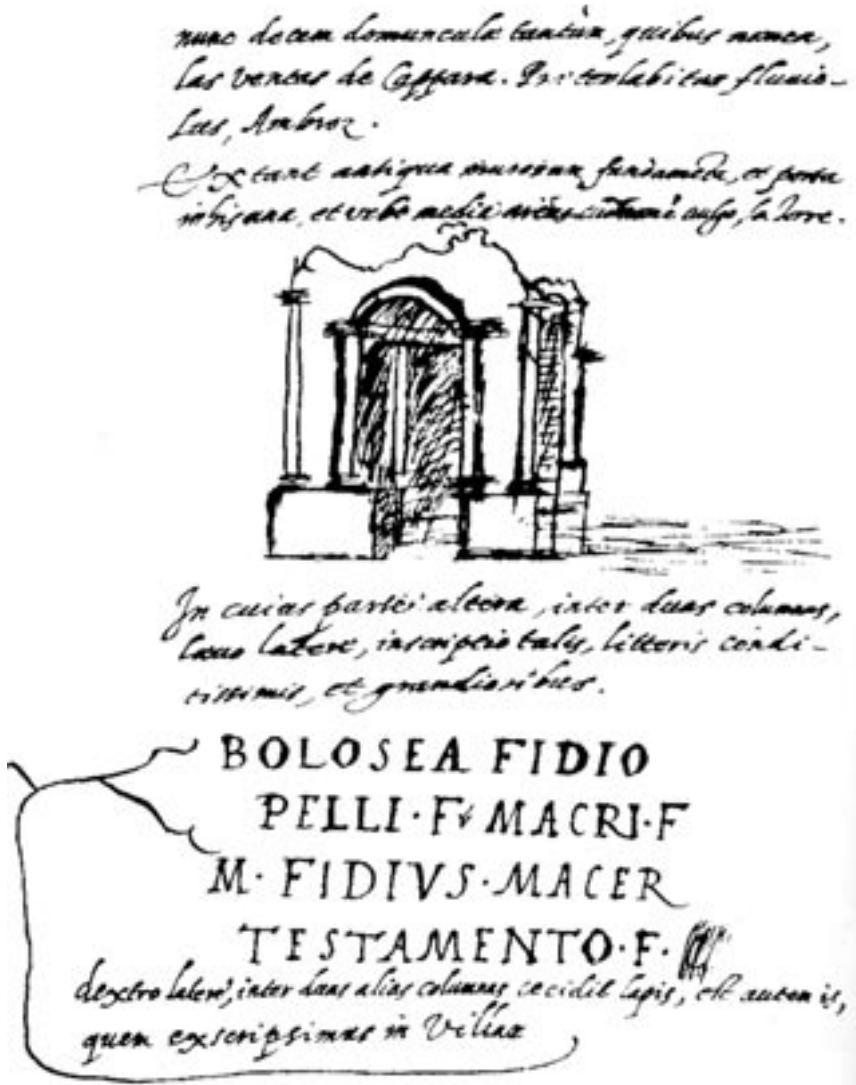 nunc decem domuncula tantùn, quibus nomen,
las ventas de Cappara. Preterlabitur fluvio-
lus, Ambroz.
Extant antiqua murorum fundamēta, et porta
et urbe media vulgo, la Torre.
In cuius parte altera, inter duas columnas,
laeuo latere, inscriptio talis, litteris condi-
tissimis, et grandioribus.
BOLOSEA FIDIO
PELLI·F· MACRI·F
M·FIDIVS·MACER
TESTAMENTO·F·
dextro latere, inter duas alias columnas cecidit lapis, est autem is,
quem exscripsimus in Villar